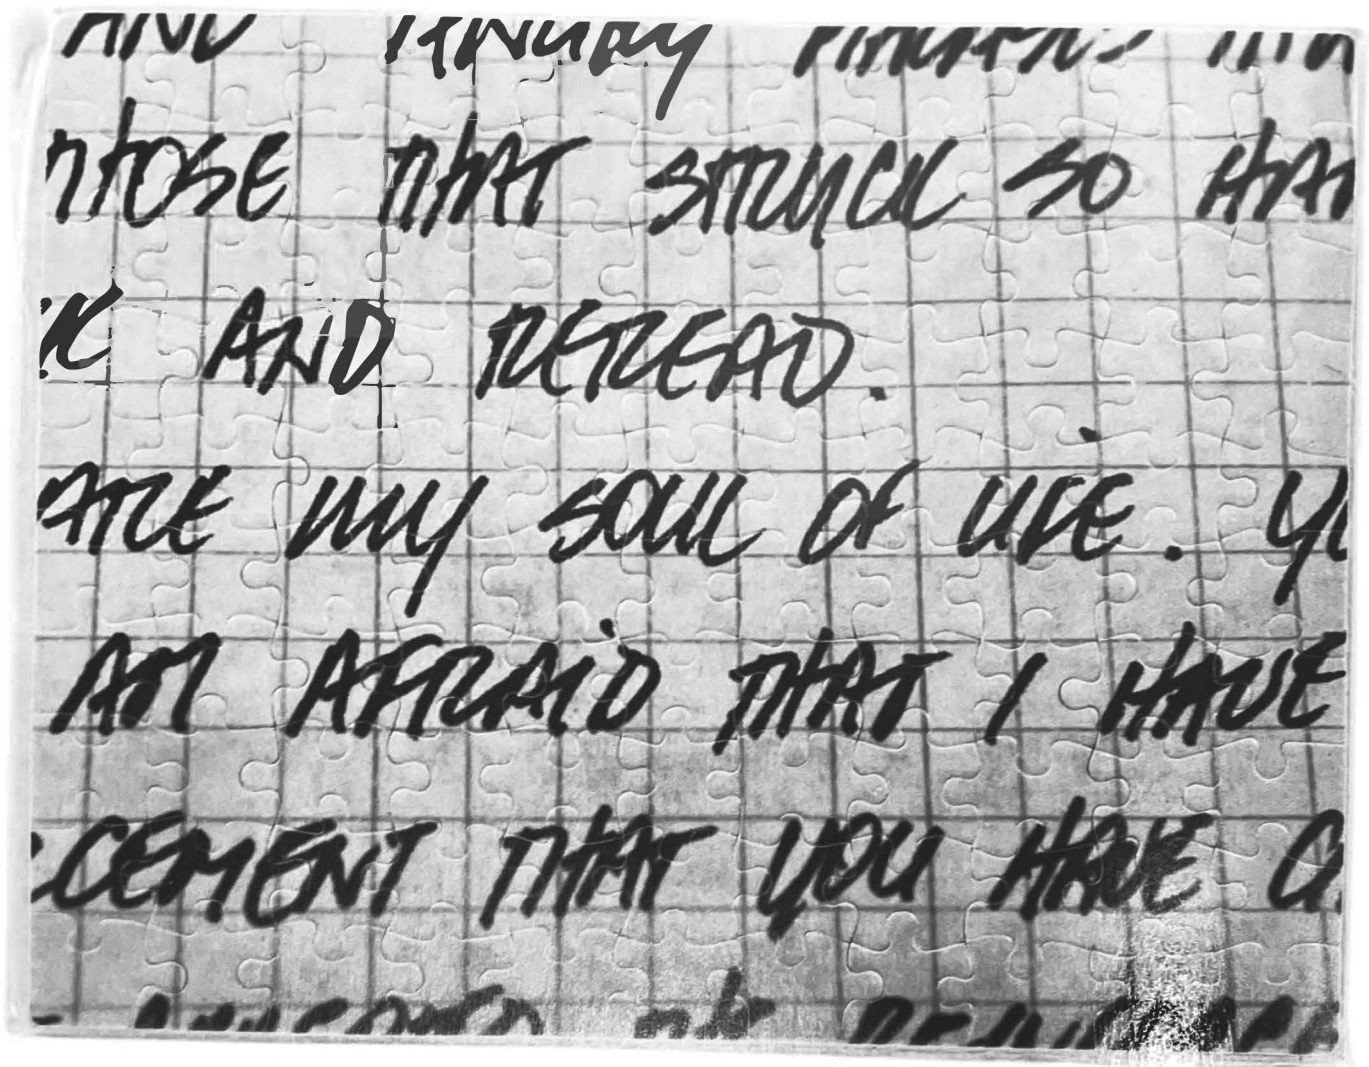 AND
THOSE THAT STRUCK SO HAR
CK AND REREAD.
ARE MY SOUL OF LIFE. YO
AM AFRAID THAT I HAVE
CEMENT THAT YOU HAVE